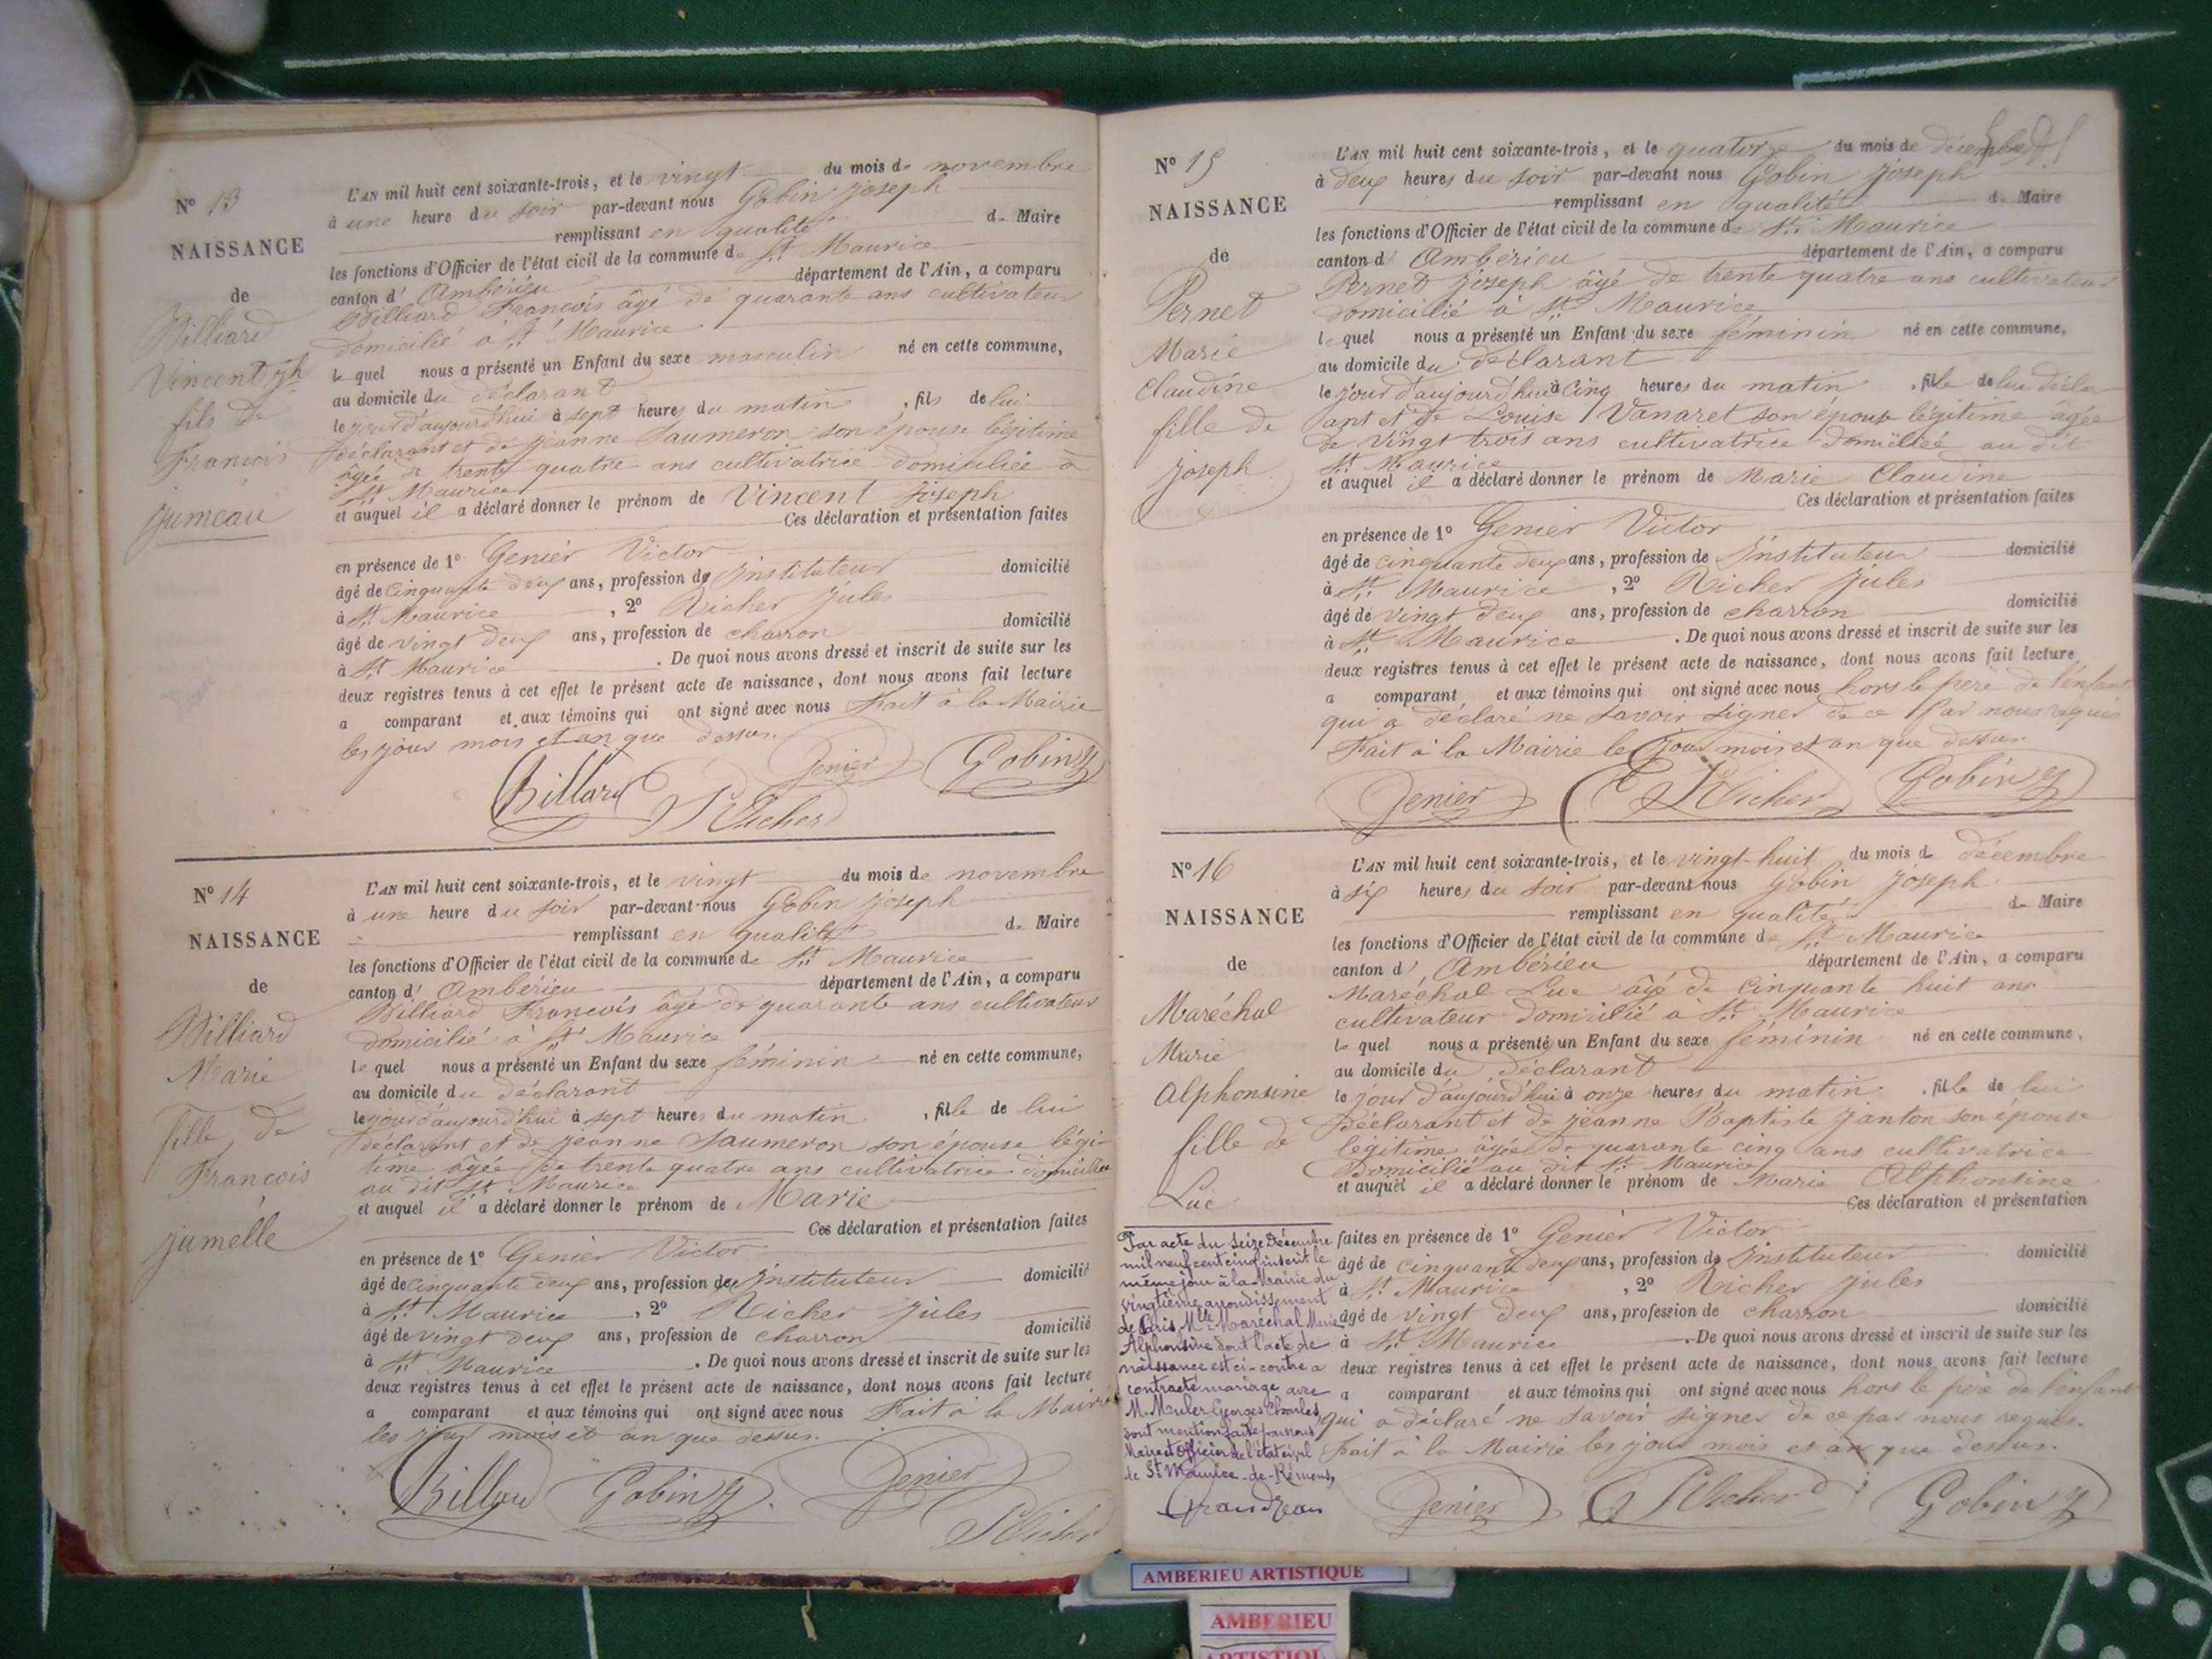 N° 13
NAISSANCE
de
Billiard
Vincent jh
fils de
François
jumeau
L'AN mil huit cent soixante-trois, et le vingt du mois de novembre
à une heure du soir par-devant nous Gobin Joseph
remplissant en qualité de Maire
les fonctions d'Officier de l'état civil de la commune de St Maurice
canton d' Ambérieu département de l'Ain, a comparu
Billiard François âgé de quarante ans cultivateur
domicilié à St Maurice
lequel nous a présenté un Enfant du sexe masculin né en cette commune,
au domicile du déclarant
le jour d'aujourd'hui à sept heures du matin, fils de lui
déclarant et de jeanne Saumeron son épouse légitime
âgée de trente quatre ans cultivatrice domiciliée à
St Maurice
et auquel il a déclaré donner le prénom de Vincent Joseph
Ces déclaration et présentation faites
en présence de 1° Genier Victor
âgé de cinquante deux ans, profession de Instituteur domicilié
à St Maurice, 2° Richer Jules
âgé de vingt deux ans, profession de charron domicilié
à St Maurice. De quoi nous avons dressé et inscrit de suite sur les
deux registres tenus à cet effet le présent acte de naissance, dont nous avons fait lecture
a comparant et aux témoins qui ont signé avec nous Fait à la Mairie
les jour mois et an que dessus.
Genier Gobin J
Billard J Richer
N° 14
NAISSANCE
de
Billiard
Marie
fille de
François
jumelle
L'AN mil huit cent soixante-trois, et le vingt du mois de novembre
à une heure du soir par-devant-nous Gobin Joseph
remplissant en qualité de Maire
les fonctions d'Officier de l'état civil de la commune de St Maurice
canton d' Ambérieu département de l'Ain, a comparu
Billiard François âgé de quarante ans cultivateur
domicilié à St Maurice
lequel nous a présenté un Enfant du sexe féminin né en cette commune,
au domicile du déclarant
le jour d'aujourd'hui à sept heures du matin, fille de lui
déclarant et de jeanne Saumeron son épouse légi-
time âgée de trente quatre ans cultivatrice domiciliée
au dit St Maurice
et auquel il a déclaré donner le prénom de Marie
Ces déclaration et présentation faites
en présence de 1° Genier Victor
âgé de cinquante deux ans, profession de Instituteur domicilié
à St Maurice, 2° Richer Jules
âgé de vingt deux ans, profession de charron domicilié
à St Maurice. De quoi nous avons dressé et inscrit de suite sur les
deux registres tenus à cet effet le présent acte de naissance, dont nous avons fait lecture
a comparant et aux témoins qui ont signé avec nous Fait à la Mairie
les jour mois et an que dessus.
Billard Gobin J Genier
J Richer
N° 15
NAISSANCE
de
Pernet
Marie
Claudine
fille de
joseph
L'AN mil huit cent soixante-trois, et le quatorze du mois de décembre
à deux heures du soir par-devant nous Gobin Joseph
remplissant en qualité de Maire
les fonctions d'Officier de l'état civil de la commune de St Maurice
canton d' Ambérieu département de l'Ain, a comparu
Pernet Joseph âgé de trente quatre ans cultivateur
domicilié à St Maurice
lequel nous a présenté un Enfant du sexe féminin né en cette commune,
au domicile du déclarant
le jour d'aujourd'hui à cinq heures du matin, fille de lui décla-
rant et de Louise Vanaret son épouse légitime âgée
de vingt trois ans cultivatrice domiciliée au dit
St Maurice
et auquel il a déclaré donner le prénom de Marie Claudine
Ces déclaration et présentation faites
en présence de 1° Genier Victor
âgé de cinquante deux ans, profession de Instituteur domicilié
à St Maurice, 2° Richer Jules
âgé de vingt deux ans, profession de charron domicilié
à St Maurice. De quoi nous avons dressé et inscrit de suite sur les
deux registres tenus à cet effet le présent acte de naissance, dont nous avons fait lecture
a comparant et aux témoins qui ont signé avec nous hors le père de l'enfant
qui a déclaré ne savoir signer de ce par nous requis
Fait à la Mairie les jour mois et an que dessus
Genier J Richer Gobin J
N° 16
NAISSANCE
de
Maréchal
Marie
Alphonsine
fille de
Luc
L'AN mil huit cent soixante-trois, et le vingt-huit du mois de décembre
à six heures du soir par-devant nous Gobin Joseph
remplissant en qualité de Maire
les fonctions d'Officier de l'état civil de la commune de St Maurice
canton d' Ambérieu département de l'Ain, a comparu
Maréchal Luc âgé de cinquante huit ans
cultivateur domicilié à St Maurice
lequel nous a présenté un Enfant du sexe féminin né en cette commune,
au domicile du déclarant
le jour d'aujourd'hui à onze heures du matin, fille de lui
déclarant et de jeanne Baptiste Janton son épouse
légitime âgée de quarante cinq ans cultivatrice
domicilié au dit St Maurice
et auquel il a déclaré donner le prénom de Marie Alphonsine
Ces déclaration et présentation
faites en présence de 1° Genier Victor
âgé de cinquante deux ans, profession de Instituteur domicilié
à St Maurice, 2° Richer Jules
âgé de vingt deux ans, profession de charron domicilié
à St Maurice. De quoi nous avons dressé et inscrit de suite sur les
deux registres tenus à cet effet le présent acte de naissance, dont nous avons fait lecture
a comparant et aux témoins qui ont signé avec nous hors le père de l'enfant
qui a déclaré ne savoir signer de ce par nous requis.
Fait à la Mairie les jour mois et an que dessus.
Genier J Richer Gobin J
Par acte du Seize Décembre
mil neuf cent cinq inscrit le
même jour à la Mairie du
vingtième arrondissement
de Paris, Mlle Maréchal Marie
Alphonsine dont l'acte de
naissance est ci-contre a
contracté mariage avec
M. Muler Georges Charles
dont mention faite par nous
Maire et officier de l'état civil
de St Maurice-de-Rémens,
Grandjean
AMBERIEU ARTISTIQUE
AMBERIEU
ARTISTIQU